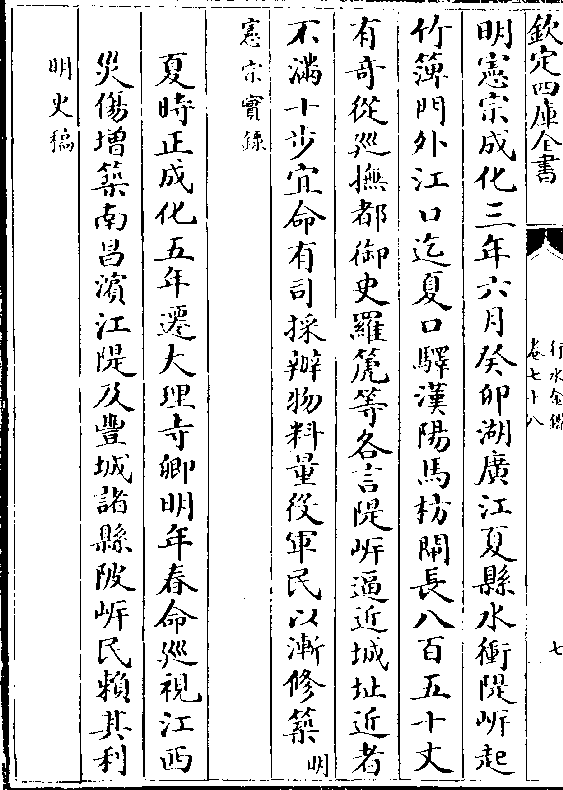 欽定四庫全書
行水金鑑
卷七十八
七
明憲宗成化三年六月癸卯湖廣江夏縣水衝隄岍起
竹簰門外江口迄夏口驛漢陽馬枋閘長八百五十丈
有奇從廵撫都御史羅箎等各言隄岍逼近城址近者
不滿十步宜命有司採辦物料量役軍民以漸修築明
憲宗實錄
夏時正成化五年遷大理寺卿明年春命廵視江西
災傷增築南昌濱江隄及豐城諸縣陂岍民賴其利
明史稿